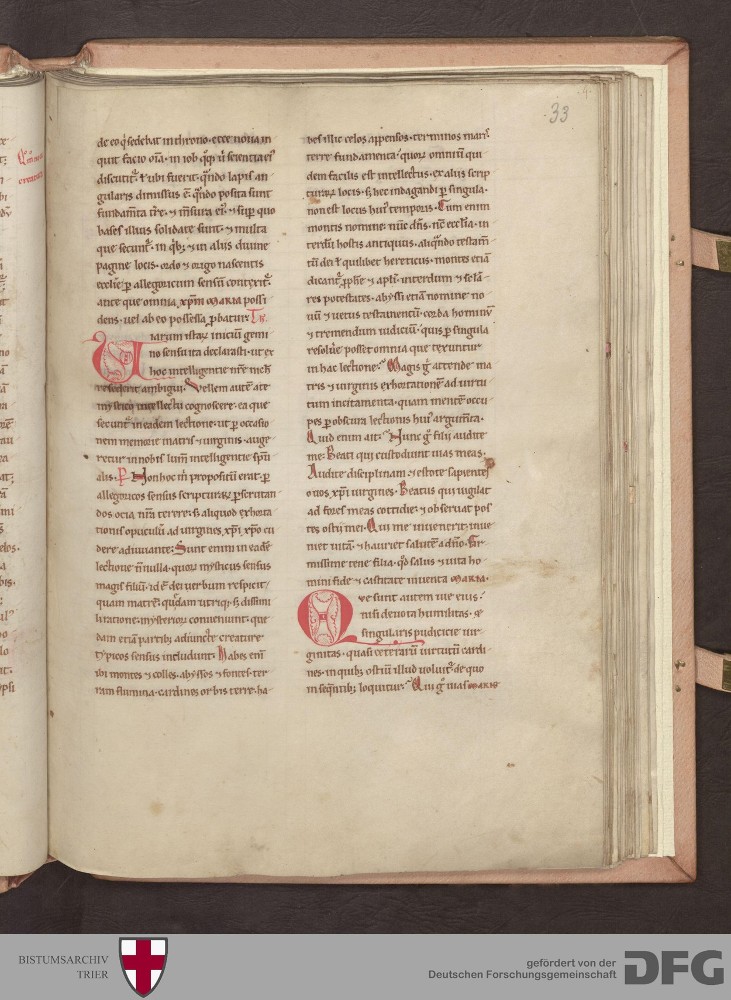 33
de eo q̇ sedebat in throno. ecce noua in
quit facio oīa. in iob. q̇q̇ ū scientia ei᷒
discutit᷑. ubi fuerit. q̇ndo lapis an
gularis dimissus ē. q̇ndo posita sunt
fundam̄ta tr̄e. ⁊ m̄sura ei᷒. ⁊ sup̄ quo
bases illius solidate sunt. ⁊ multa
que secunt᷑. in q̇b᷒. ⁊ in aliis diuine
pagine locis. ordo ⁊ origo nascentis
ecclīe. ꝑ allegoricum sensū contexit᷑.
ante que omnia xp̄m maria possi
dens. uel ab eo possessa ꝓbatur. T̄.
Uiarum istaꝝ iniciū gemi
no sensu ita declarasti. ut ex
hoc intelligentie nr̄e nich̄
resederit ambigui. Vellem autē a te
mystico intellectu cognoscere. ea que
secunt᷑ in eadem lectione. ut ꝑ occasio
nem memorie matris ⁊ uirginis. auge
retur in nobis lum̄ intelligentie sp̄ri
alis. P̄. Non hoc m̄ propositū erat. ꝑ
allegoricos sensus scripturaꝝ ꝑscrutan
dos. ocia nr̄a terere. s; aliquod exhorta
tionis opusculū ad uirgines xp̄i xp̄o cu
dere adiuuante. Sunt enim in eadē
lectione n̄nulla. quoꝝ mysticus sensus
magis filiū. id ē dei uerbum respicit.
quam matrē. quędam utriq;. s; dissimi
li ratione. mysterioꝝ conueniunt. que
dam etiā partib᷒ adiuncte creature
typicos sensus includunt. Habes eni᷒
ibi montes ⁊ colles. abyssos ⁊ fontes. ter
ram flumina. cardines orbis terre. ha-
bes illic celos appensos. terminos mar᷑.
terre fundamenta. quoꝝ omniū qui
dem facilis est intellectus. ex aliis scrip
turaꝝ locis. s; hec indagandi ꝑ singula.
non est locus hui᷒ temporis. Cum enim
montis nomine. nūc dn̄s. nc̄ eccl̄ia. in
terdū hostis antiquus. aliq̇ndo testam̄
tū dei. quilibet hereticus. montes etiā
dicant᷑ ꝓph̄e ⁊ apl̄i. interdum ⁊ secla᷑
res potestates. abyssi etiā nomine no
uū ⁊ uetus testamentū. corda hominū
⁊ tremendum iudiciū. quis ꝑ singula
resolue᷑ posset omnia que texuntur
in hac lectione. Magis g᷑ attende ma
tris ⁊ uirginis exhortationē. ad uirtu
tum incitamenta. quam mentē occu
pes ꝑ obscura lectionis hui᷒ argum̄ta.
Quid enim ait. Nunc g᷑ filii audite
me. Beati qui custodiunt uias meas.
Audite disciplinam. ⁊ estote sapientes
o uos xp̄i uirgines. Beatus qui uigilat
ad fores meas cottidie. ⁊ obseruat pos
tes ostii mei. Qui me inuenerit. inue
niet uitā. ⁊ hauriet salutē a dn̄o. Fir
missime tene filia. q̇d salus ⁊ uita ho
mini fide ⁊ castitate inuenta maria.
Que sunt autem uie eius.
nisi deuota humilitas. ⁊
singularis pudicicie uir
ginitas. quasi ceterarū uirtutū cardi
nes. in quib᷒ ostiū illud uoluit᷑. de quo
in seq̄ntib᷒ loquitur. Qui g᷑ uias marie
BISTUMSARCHIV
TRIER
gefördert von der
Deutschen Forschungsgemeinschaft
DFG